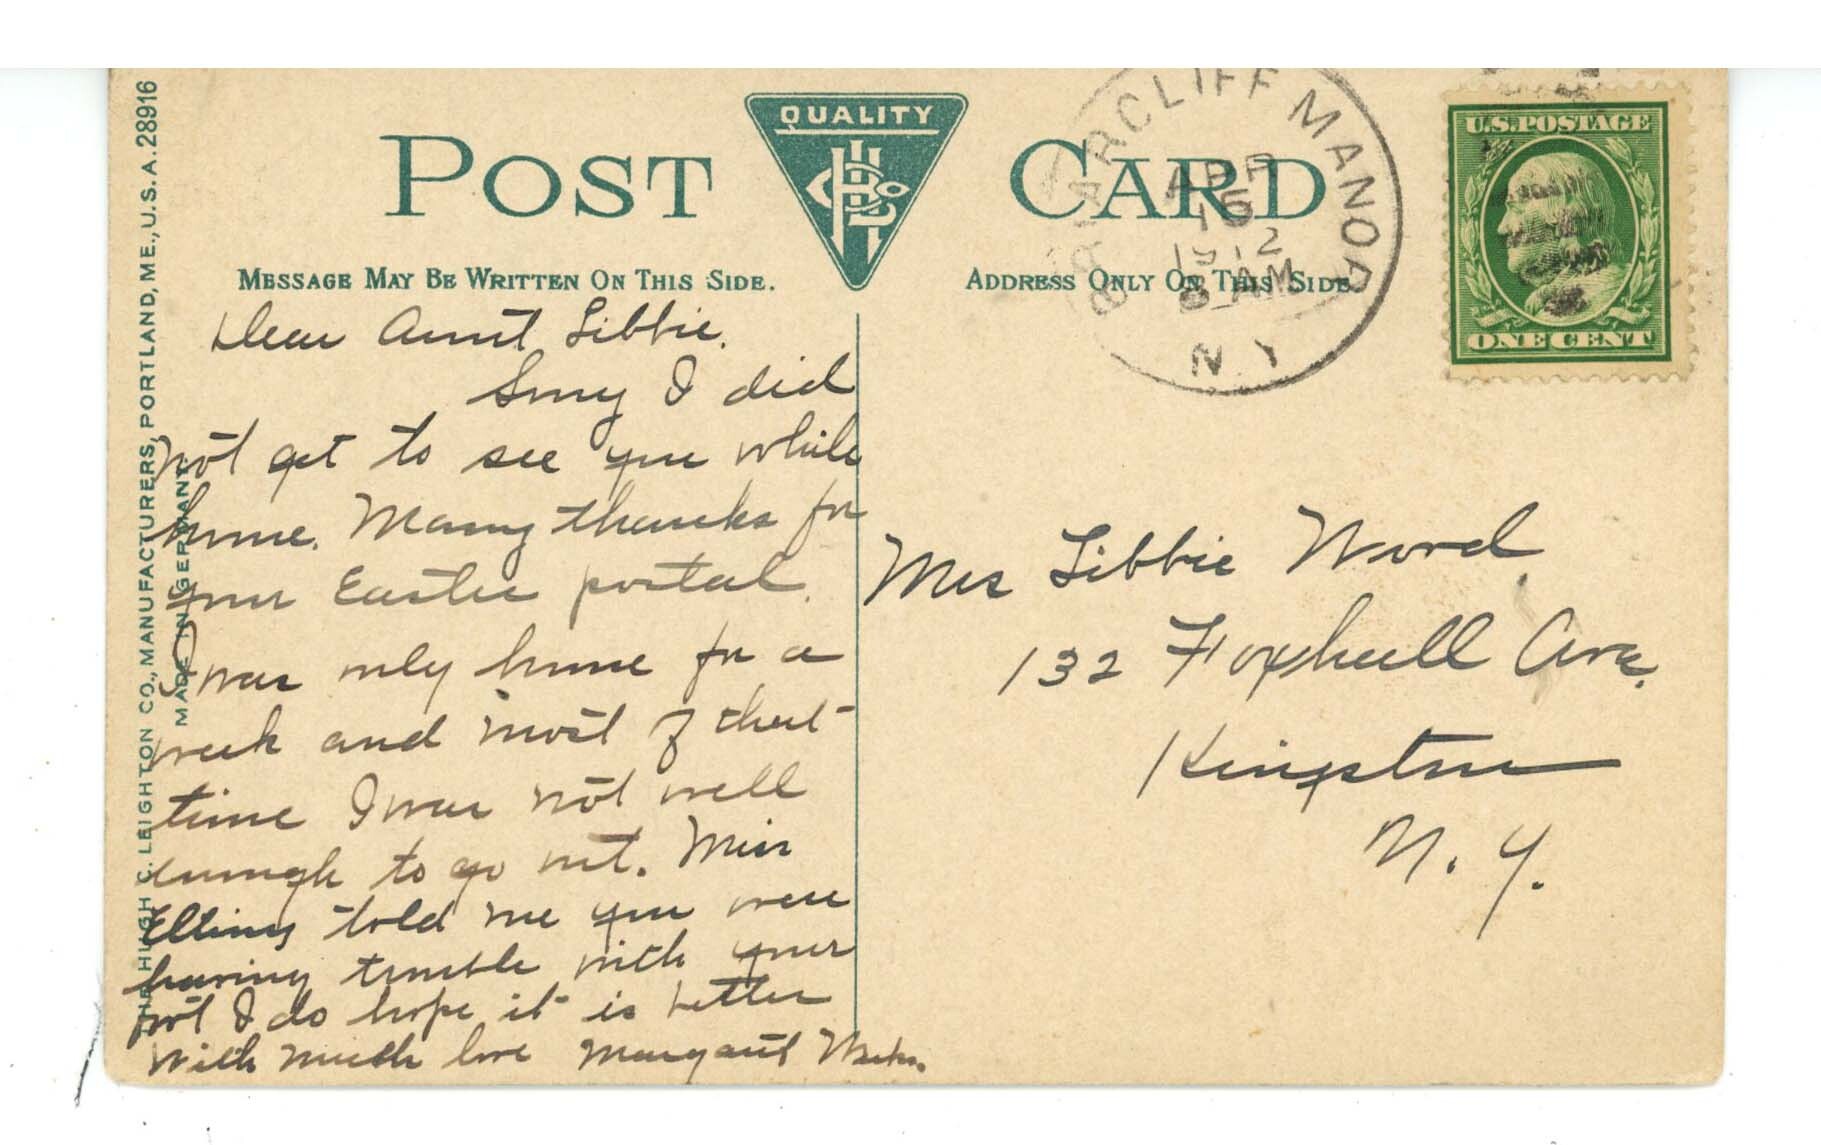 THE HUGH C. LEIGHTON CO., MANUFACTURERS, PORTLAND, ME., U.S.A. 28916
MADE IN GERMANY.
POST CARD
QUALITY
MESSAGE MAY BE WRITTEN ON THIS SIDE.
ADDRESS ONLY ON THIS SIDE.
BRIARCLIFF MANOR
APR
15
1912
8 AM
N.Y.
U.S. POSTAGE
ONE CENT
Dear Aunt Libbie.
Sorry I did
not get to see you while
home. Many thanks for
your Easter postal.
I was only home for a
week and most of that
time I was not well
enough to go out. Miss
Elting told me you were
having trouble with your
foot I do hope it is better
With much love Margaret
Mrs Libbie Word
132 Foxhall Ave.
Kingston
N. Y.